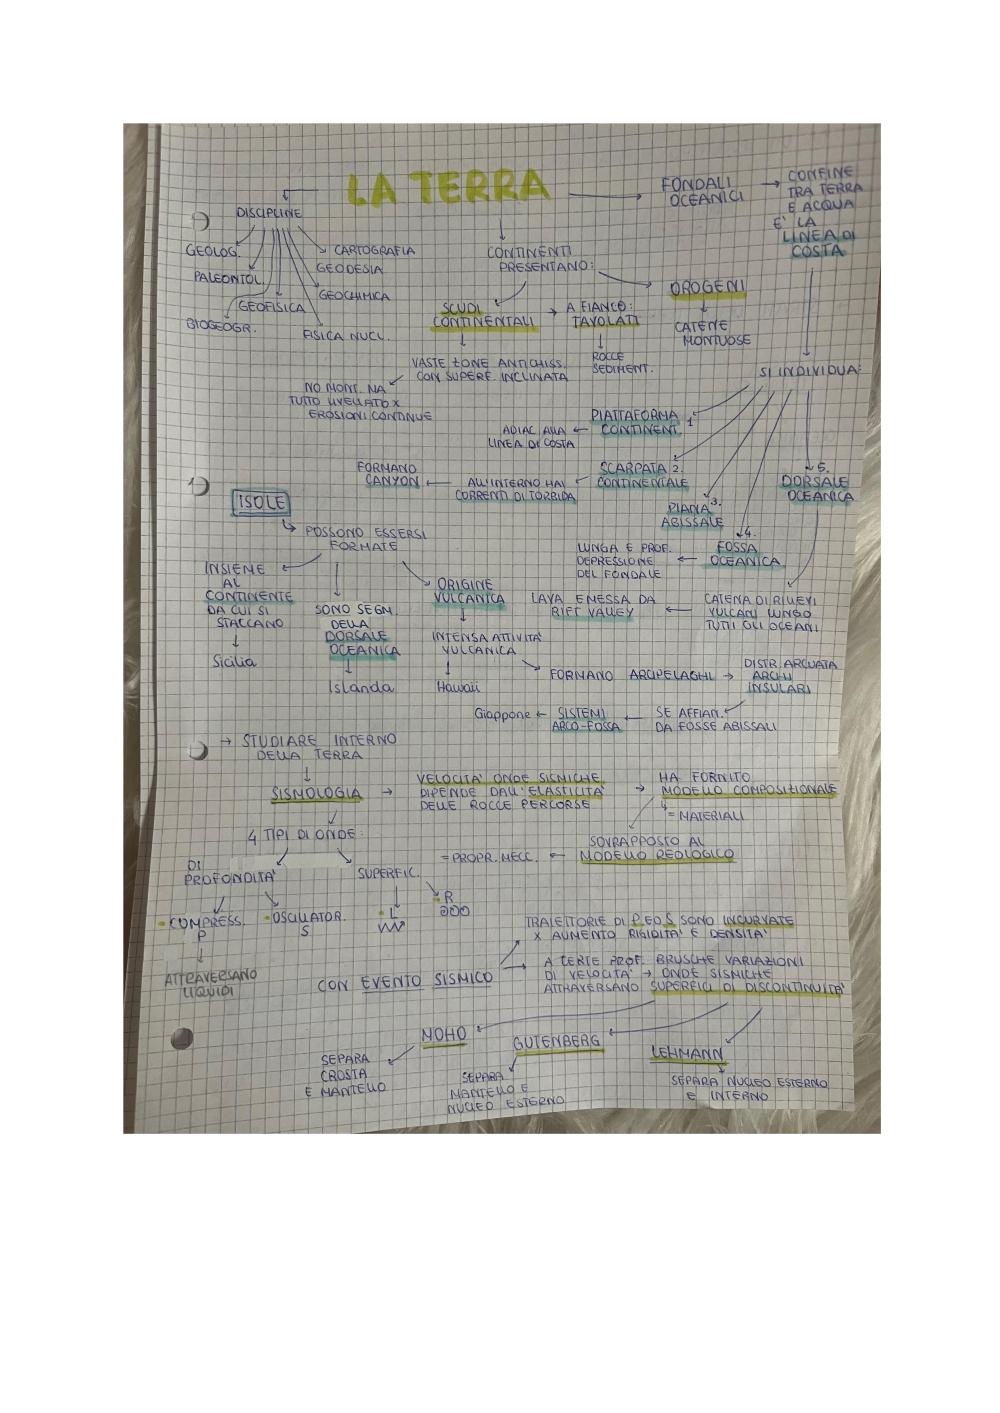 LA TERRA
DISCIPLINE
GEOLOG.
PALEONTOL.
BIOGEOGR.
GEOFISICA
FISICA NUCL.
GEOCHIMICA
GEODESIA
CARTOGRAFIA
CONTINENTI
PRESENTANO:
SCUDI
CONTINENTALI
A FIANCO:
TAVOLATI
ROCCE
SEDIMENT.
VASTE ZONE ANTICHISS.
CON SUPERF. INCLINATA
NO MONT. MA
TUTTO LIVELLATO X
EROSIONI CONTINUE
OROGENI
CATENE
MONTUOSE
FONDALI
OCEANICI
CONFINE
TRA TERRA
E ACQUA
E' LA
LINEA DI
COSTA
SI INDIVIDUA:
PIATTAFORMA
CONTINENT. 1
ADIAC. ALLA
LINEA DI COSTA
SCARPATA 2.
CONTINENTALE
ALL'INTERNO HAI
CORRENTI DI TORBIDA
FORMANO
CANYON
3.
PIANA
ABISSALE
4.
FOSSA
OCEANICA
LUNGA E PROF.
DEPRESSIONE
DEL FONDALE
5.
DORSALE
OCEANICA
CATENA DI RILIEVI
VULCANI LUNGO
TUTTI GLI OCEANI
LAVA EMESSA DA
RIFT VALLEY
ISOLE
POSSONO ESSERSI
FORMATE
INSIEME
AL
CONTINENTE
DA CUI SI
STACCANO
Sicilia
SONO SEGM.
DELLA
DORSALE
OCEANICA
Islanda
ORIGINE
VULCANICA
INTENSA ATTIVITA'
VULCANICA
Hawaii
FORMANO ARCIPELAGHI
DISTR. ARCUATA
ARCHI
INSULARI
SE AFFIAN.
DA FOSSE ABISSALI
SISTEMI
ARCO-FOSSA
Giappone
→ STUDIARE INTERNO
DELLA TERRA
SISMOLOGIA
VELOCITA' ONDE SISMICHE
DIPENDE DALL'ELASTICITA'
DELLE ROCCE PERCORSE
HA FORNITO
MODELLO COMPOSIZIONALE
= MATERIALI
SOVRAPPOSTO AL
MODELLO REOLOGICO
= PROPR. MECC.
4 TIPI DI ONDE:
DI
PROFONDITA'
COMPRESS.
P
ATTRAVERSANO
LIQUIDI
OSCILLATOR.
S
SUPERFIC.
L
R
CON EVENTO SISMICO
TRAIETTORIE DI P E O S SONO INCURVATE
X AUMENTO RIGIDITA' E DENSITA'
A CERTE PROF. BRUSCHE VARIAZIONI
DI VELOCITA' → ONDE SISMICHE
ATTRAVERSANO SUPERFICI DI DISCONTINUITA'
MOHO
SEPARA
CROSTA
E MANTELLO
GUTENBERG
SEPARA
MANTELLO E
NUCLEO ESTERNO
LEHMANN
SEPARA NUCLEO ESTERNO
E INTERNO